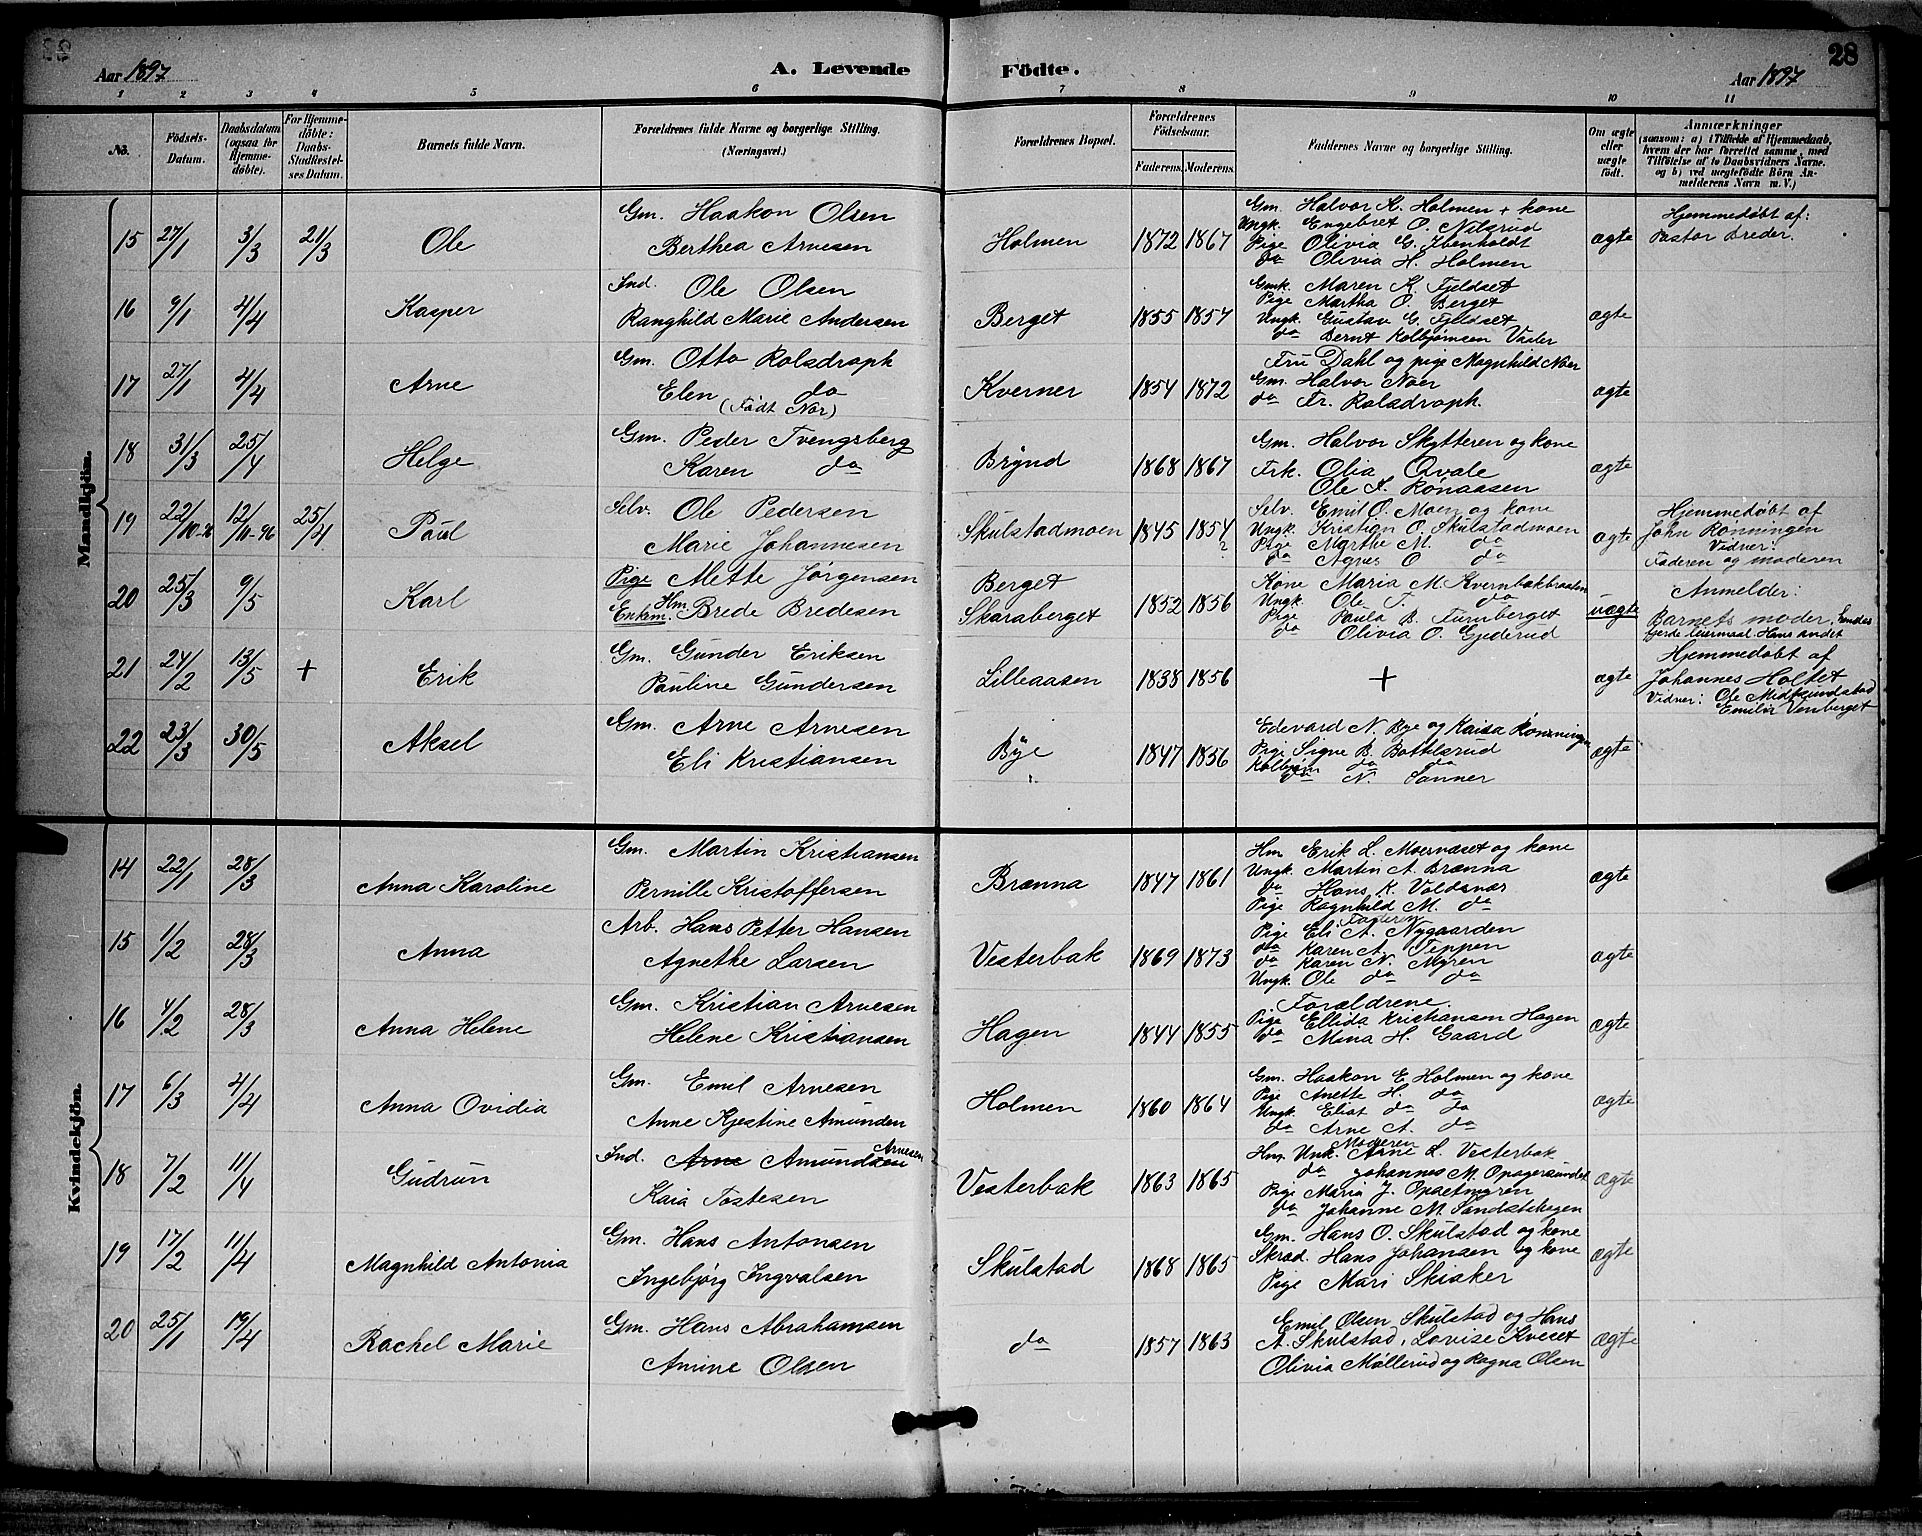 28
Aar 1897
A. Levende Födte.
Aar 1897
1 2 3 4 5 6 7 8 9 10 11
No.
Födsels-Datum.
Daabsdatum (ogsaa for Hjemmedöbte).
For Hjemmedöbte: Daabs-Stadfestelses Datum.
Barnets fulde Navn.
Forældrenes fulde Navne og borgerlige Stilling. (Næringsvei.)
Forældrenes Bopæl.
Forældrenes Födselsaar.
Faderens. Moderens.
Faddernes Navne og borgerlige Stilling.
Om ægte eller uægte födt.
Anmærkninger
(saasom: a) i Tilfælde af Hjemmedaab, hvem der har forrettet samme, med Tilföielse af to Daabsvidners Navne, og b) ved uægtefödte Börn Anmelderens Navn m. V.)
Mandkjön.
15 27/1 3/3 21/3 Ole
Gm. Haakon Olsen
Berthea Arnesen
Holmen 1872 1867
Gm. Halvor K. Holmen + kone
Ungk. Engebret O. Nilsrud
Pige Olivia G. Ibenholdt
da Olivia H. Holmen
ægte
Hjemmedøbt af:
Pastor Breder.
16 9/1 4/4 Kasper
Ind. Ole Olsen
Ranghild Marie Andersen
Berget 1855 1857
Gmk. Maren K. Fjeldset
Pige Martha O. Berget
Ungk. Gustav G. Fjeldset
da Bernt Kolbjørnsen Vaaler
ægte
17 27/1 4/4 Arne
Gm. Otto Rolsdroph
Elen da
(Født Nor)
Kverner 1854 1872
Fru Dahl og pige Magnhild Noer
Gm. Halvor Noer
da Fr. Rolsdroph.
ægte
18 31/3 25/4 Helge
Gm. Peder Tvengsberg
Karen da
Brynd 1868 1867
Gm. Halvor Skytteren og kone
Frk. Olia Qvale
Ole A. Rønaasen
ægte
19 22/10-96 12/11-96 25/4 Paul
Selv. Ole Pedersen
Marie Johannesen
Skulstadmoen 1845 1854 ?
Selv. Emil O. Moen og kone
Ungk. Kristian O. Skulstadmoen
Pige Marthe M. da
da Agnes O da
ægte
Hjemmedøbt af
John Rønningen
Vidner:
Faderen og moderen
20 25/3 9/5 Karl
Pige Mette Jørgensen
Enkem. Hm. Brede Bredesen
Berget
Skaraberget
1852 1856
Kone Maria M. Kvernbakbraaten
Ungk. Ole T. da
Pige Paula B. Furuberget
da Olivia O. Gjederud
uægte
Anmelder:
Barnets moder, hendes
fjerde leiermaal Hans andet
21 24/2 13/5 + Erik
Gm. Gunder Eriksen
Pauline Gundersen
Lilleaasen 1838 1856
+
ægte
Hjemmedøbt af
Johannes Holtet
Vidner: Ole Midtsundstad
Emilie Venberget
22 23/3 30/5 Aksel
Gm. Arne Arnesen
Eli Kristiansen
Bye 1847 1856
Edevard N. Bye og Kaisa Rønningen
Pige Signe B. Bottilsrud
Kolbjørn da da
da N. Sanner
ægte
Kvindekjön.
14 22/1 28/3 Anna Karoline
Gm. Martin Kristiansen
Pernille Kristoffersen
Brænna 1847 1861
Hm Erik L. Moervaset og kone
Ungk. Martin A. Brænna
da Hans K. Voldsnæs
Pige Ragnhild M. da
ægte
15 1/2 28/3 Anna
Arb. Hans Petter Hansen
Agnethe Larsen
Vesterbak 1869 1873
Faderen
Pige Eli A. Nygaarden
da Karen A. Teppen
da Karen N. Myren
Ungk. Ole da da
ægte
16 4/2 28/3 Anna Helene
Gm. Kristian Arnesen
Helene Kristiansen
Hagen 1844 1855
Forældrene.
Pige Ellida Kristiansen Hagen
da Mina H. Gaard
ægte
17 6/3 4/4 Anna Ovidia
Gm. Emil Arnesen
Anne Kjestine Amunden
Holmen 1860 1864
Gm. Haakon E. Holmen og kone
Pige Anette H. da
Ungk. Eliat da da
da Arne A. da
ægte
18 7/2 11/4 Gudrun
Ind. Arne Amundsen Arnesen
Kaia Tostesen
Vesterbak 1863 1865
Moderen
Hm. Unk. Arne L. Vesterbak
da Johannes M. Opagersundet
Pige Maria J. Opsetmyren
da Johanne M. Sandstehagen
ægte
19 17/2 11/4 Magnhild Antonia
Gm. Hans Antonsen
Ingebjørg Ingvalsen
Skulstad 1868 1865
Gm. Hans O. Skulstad og kone
Skræd. Hans Johansen og kone
Pige Mari Skiaker
ægte
20 25/1 19/4 Rachel Marie
Gm. Hans Abrahamsen
Amine Olsen
da 1857 1863
Emil Olsen Skulstad og Hans
A. Skulstad, Lovise Kveset
Olivia Møllerud og Ragna Olsen
ægte